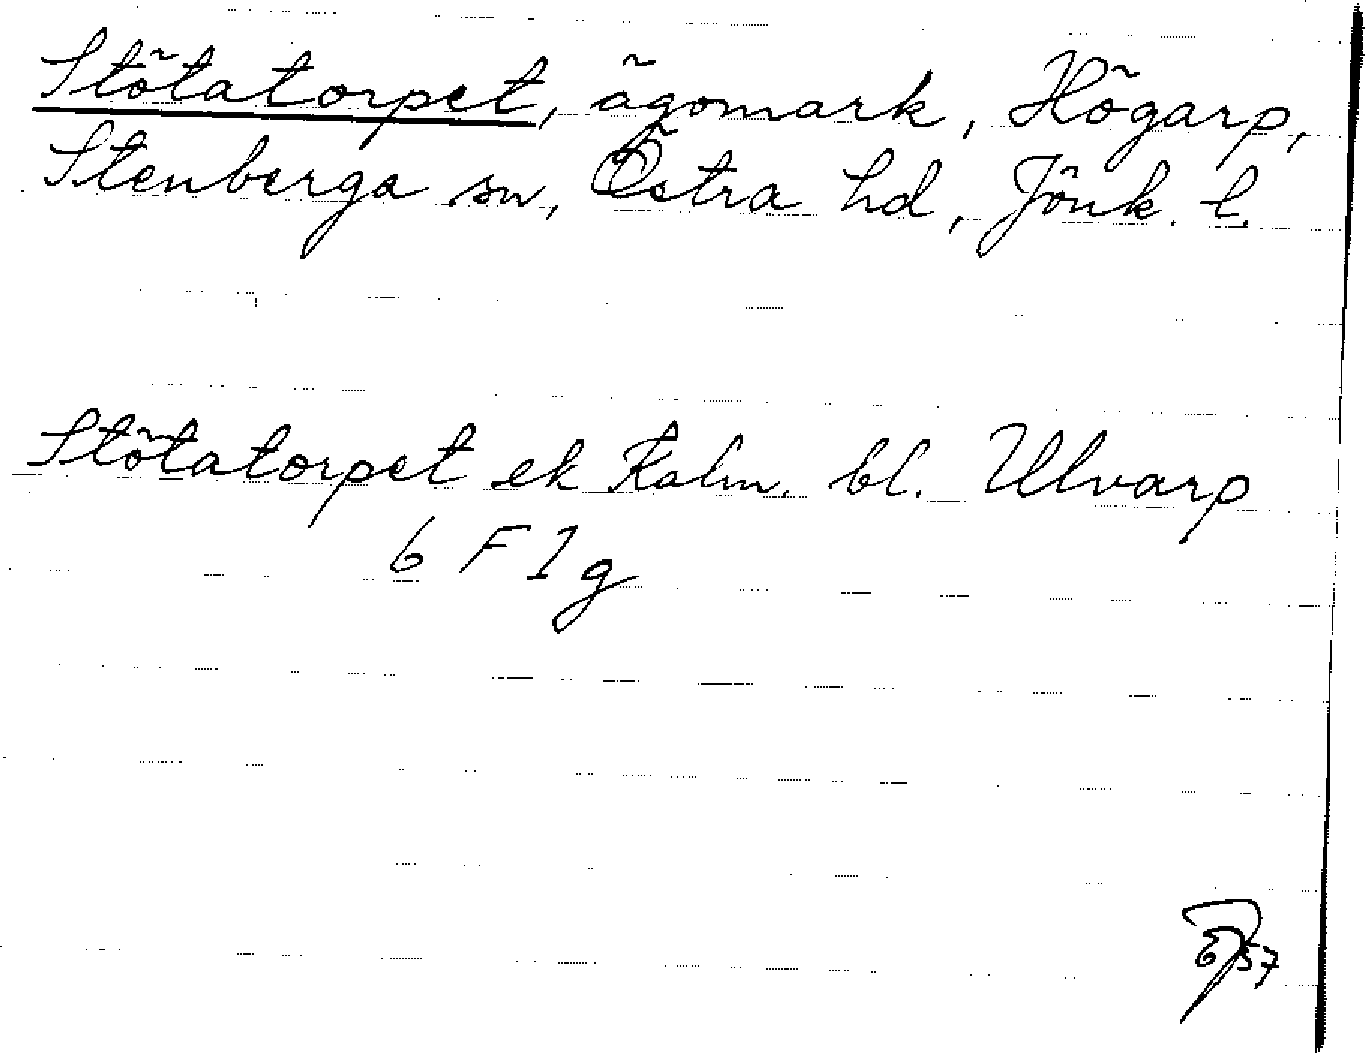 Stötatorpet, ägomark, Högarp,
Stenberga sn, Östra hd, Jönk. l.
Stötatorpet ek Kalm. bl. Ulvarp
6 F 1 g
57